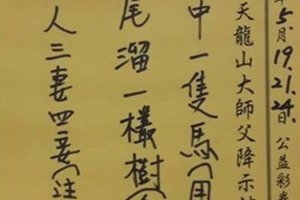 年5月19.21.24.日公益彩券
天龍山大師父降示
中一隻馬(用
尾溜一欉樹(
人三妻四妾(注